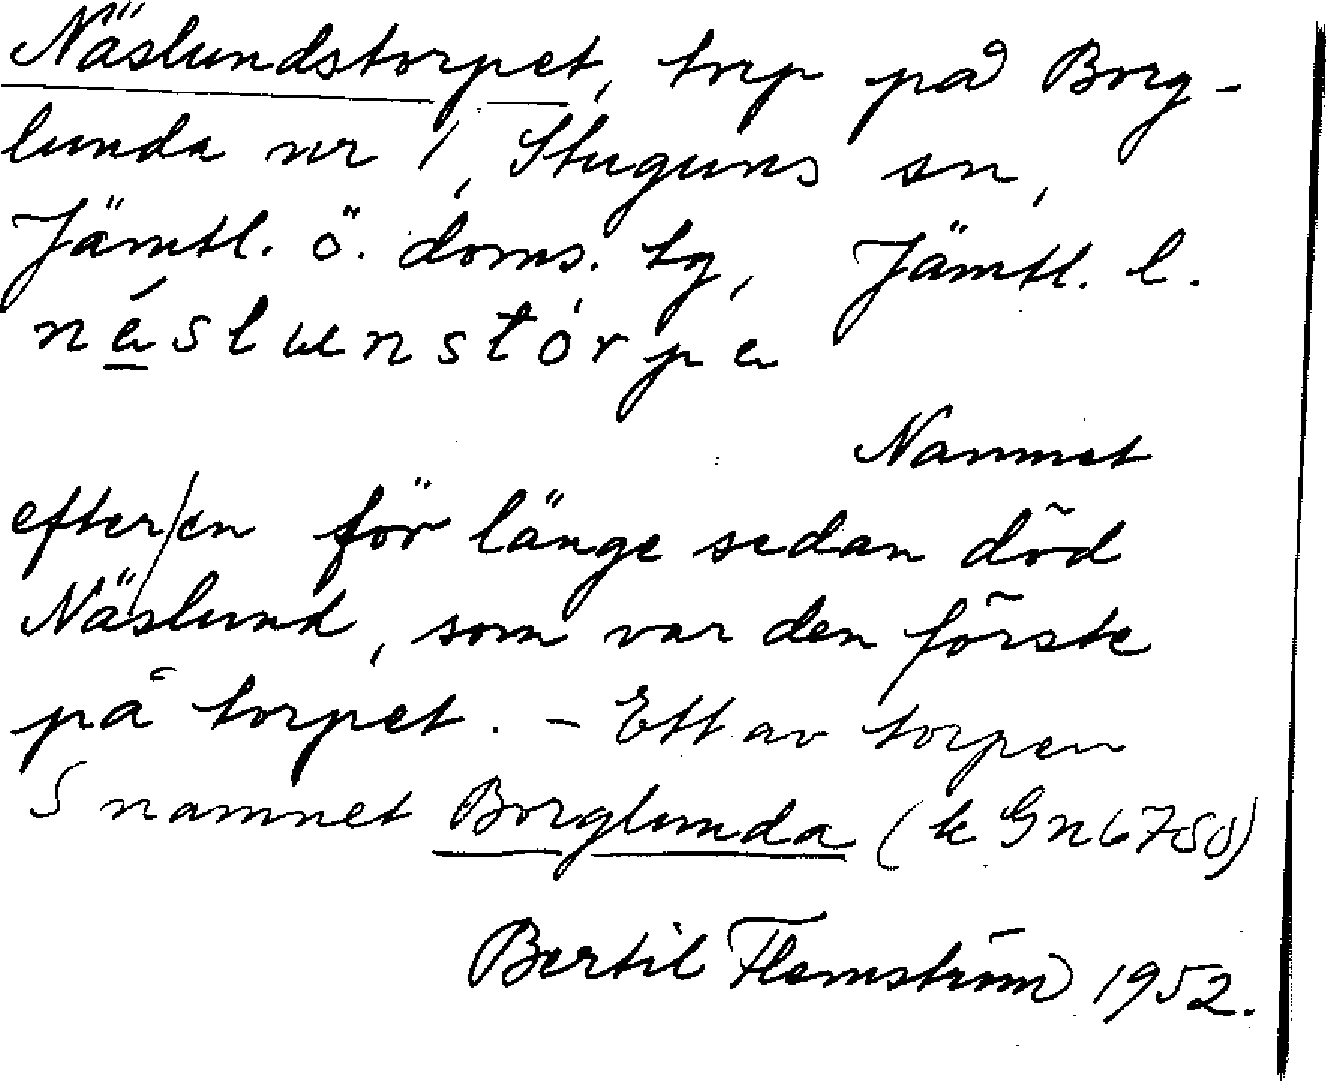 Näslundstorpet, torp på Borg-
lunda nr 1, Stuguns sn,
Jämtl. ö. doms. tg, Jämtl. l.
Namnet
efter en för länge sedan död
Näslund, som var den förste
på torpet. – Ett av torpen
S namnet Borglunda (k Gn 6780)
Bertil Flemström 1952.